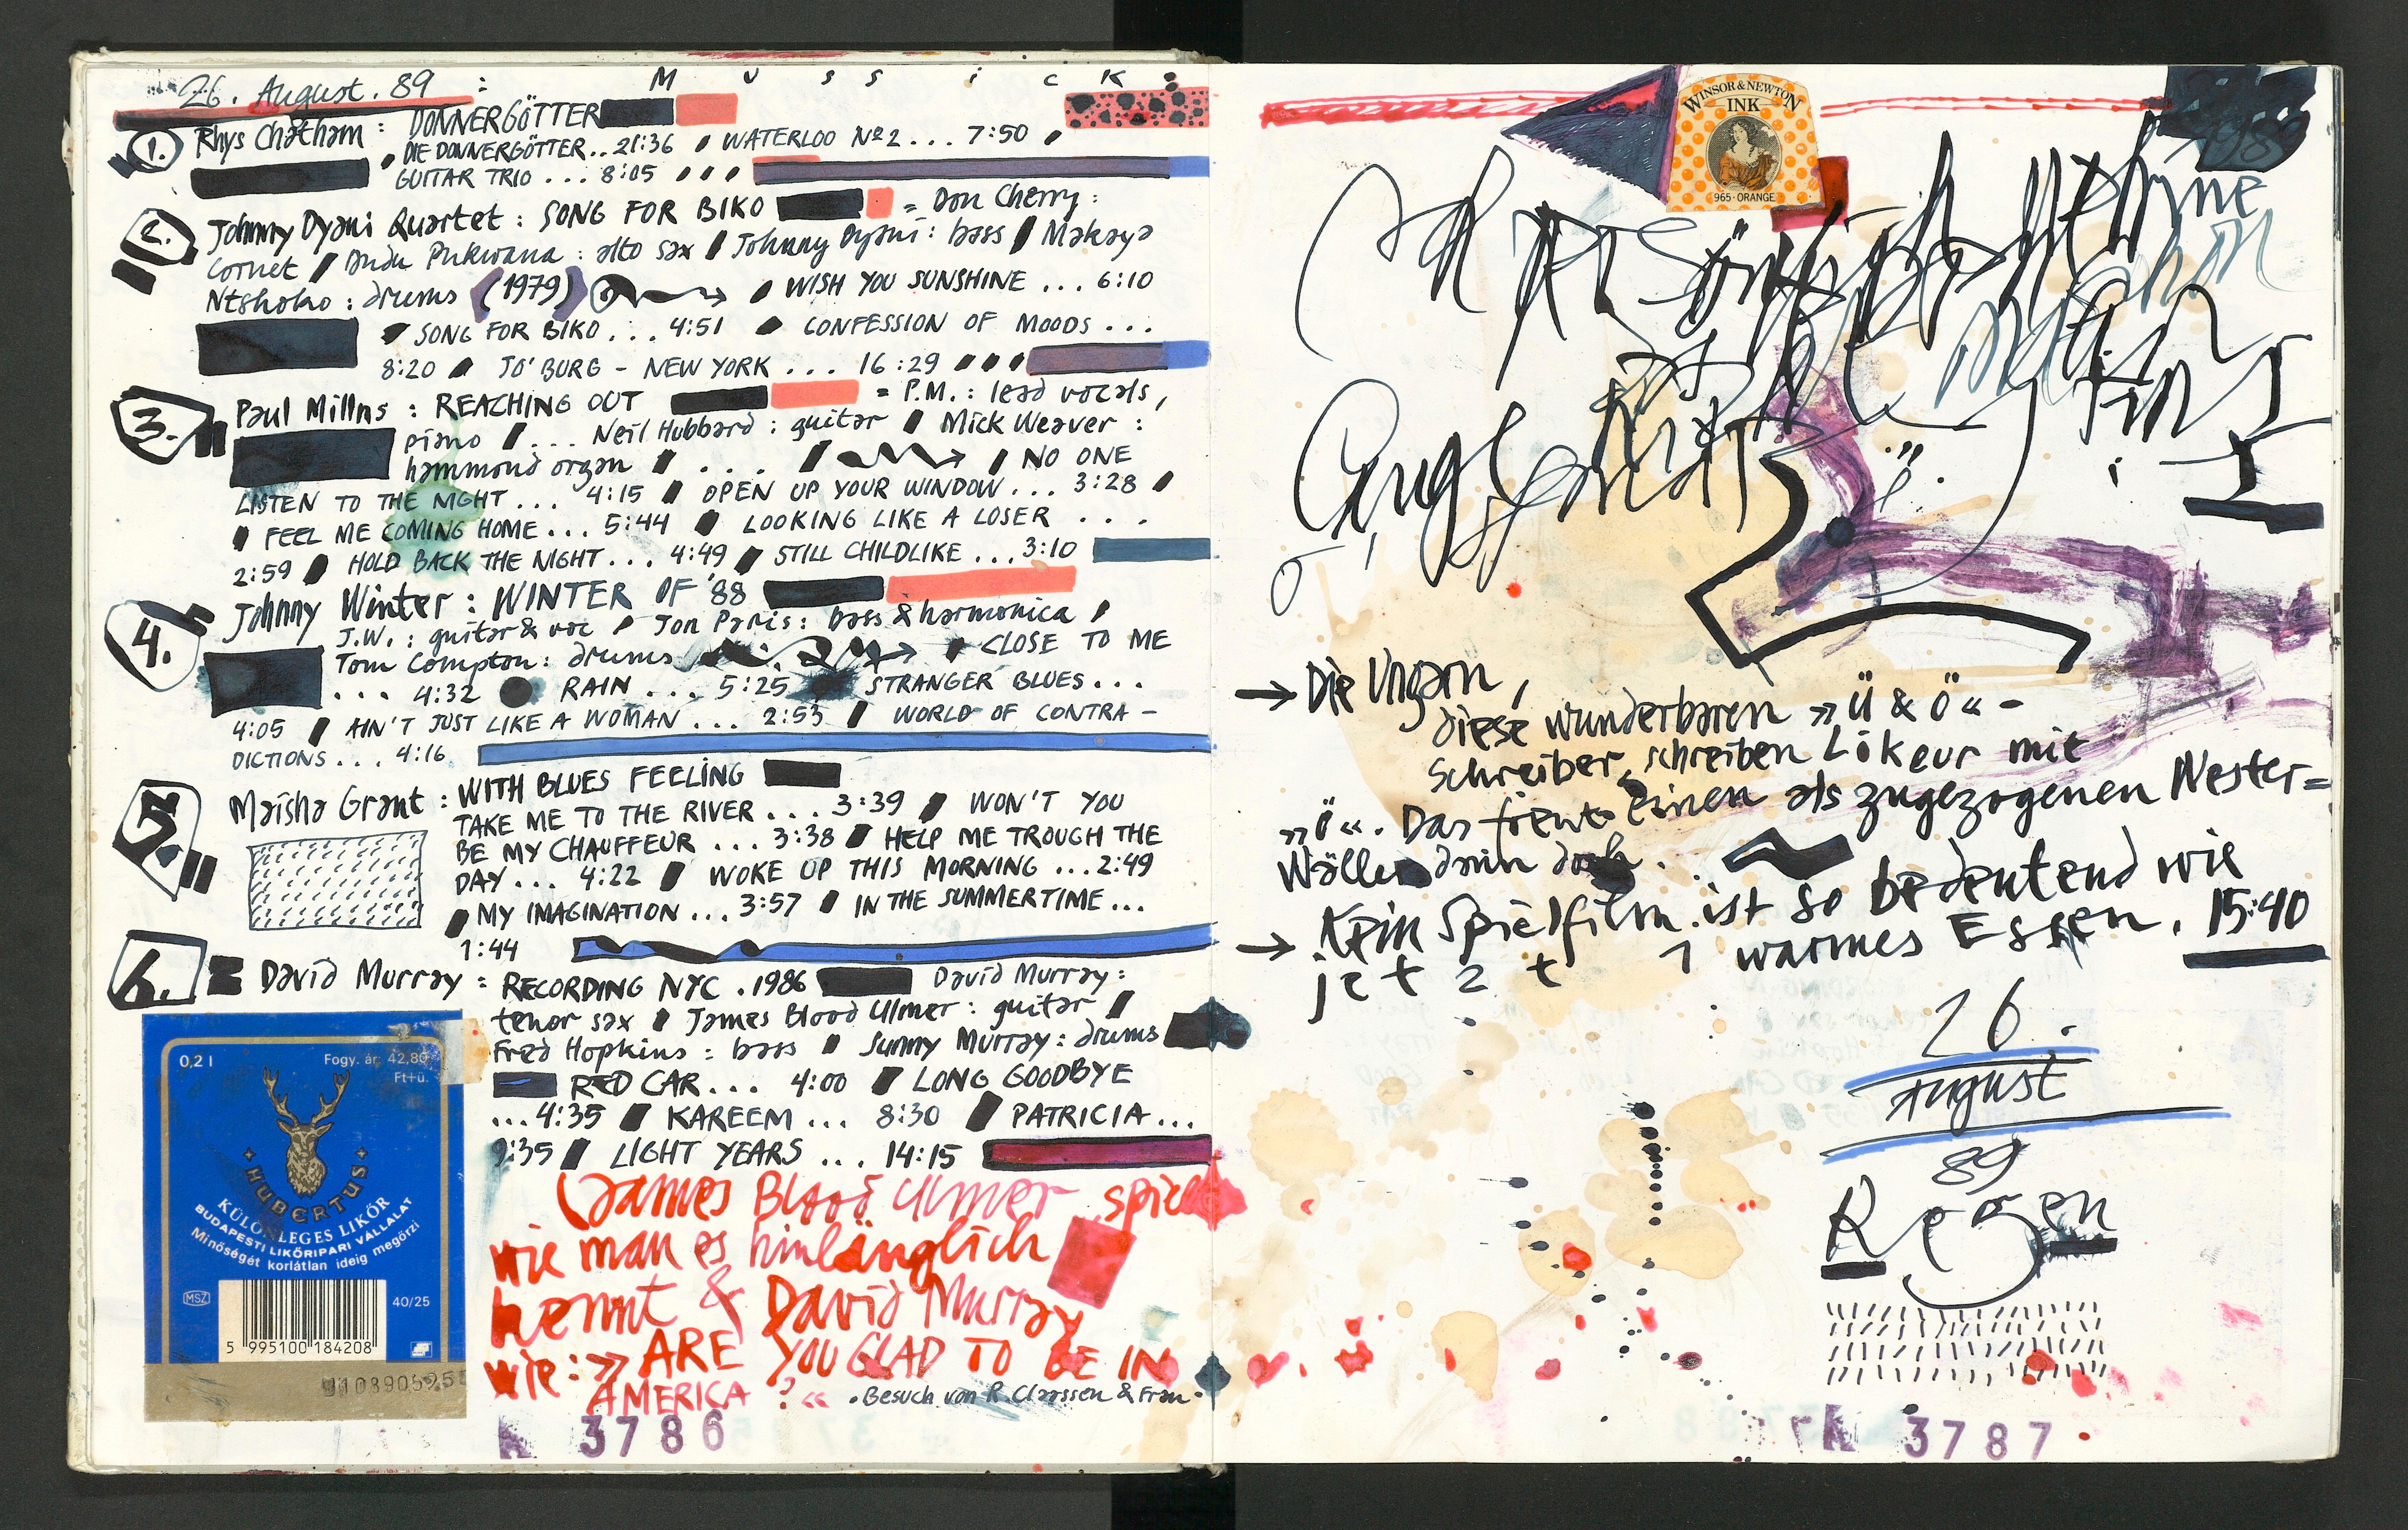 26. August. 89 : M u s s i c k :
1. Rhys Chatham : DONNERGÖTTER
DIE DONNERGÖTTER.. 21:36 WATERLOO Nº 2... 7:50
GUITAR TRIO ... 8:05
2. Johnny Dyani Quartet : SONG FOR BIKO = Don Cherry :
Cornet / Dudu Pukwana : alto sax / Johnny Dyani : bass / Makaya
Ntshoko : drums (1979) WISH YOU SUNSHINE ... 6:10
SONG FOR BIKO ... 4:51 CONFESSION OF MOODS ...
8:20 JO'BURG - NEW YORK ... 16:29
3. Paul Millns : REACHING OUT = P.M. : lead vocals,
piano / ... Neil Hubbard : guitar / Mick Weaver :
hammond organ / .... / NO ONE
LISTEN TO THE NIGHT ... 4:15 OPEN UP YOUR WINDOW ... 3:28
FEEL ME COMING HOME ... 5:44 LOOKING LIKE A LOSER ....
2:59 HOLD BACK THE NIGHT ... 4:49 STILL CHILDLIKE ... 3:10
4. Johnny Winter : WINTER OF '88
J.W. : guitar & voc / Jon Paris : bass & harmonica /
Tom Compton : drums CLOSE TO ME
.... 4:32 RAIN ... 5:25 STRANGER BLUES ...
4:05 AIN'T JUST LIKE A WOMAN ... 2:53 WORLD OF CONTRA -
DICTIONS ... 4:16
5. Maisha Grant : WITH BLUES FEELING
TAKE ME TO THE RIVER .... 3:39 WON'T YOU
BE MY CHAUFFEUR ... 3:38 HELP ME TROUGH THE
DAY ... 4:22 WOKE UP THIS MORNING ... 2:49
MY IMAGINATION ... 3:57 IN THE SUMMERTIME ...
1:44
6. David Murray : RECORDING NYC . 1986 David Murray :
tenor sax / James Blood Ulmer : guitar /
Fred Hopkins : bass Sunny Murray : drums
RED CAR ... 4:00 LONG GOODBYE
... 4:35 KAREEM ... 8:30 PATRICIA ...
9:35 LIGHT YEARS ... 14:15
James Blood Ulmer spielt
wie man es hinlänglich
kennt & David Murray
wie : » ARE YOU GLAD TO BE IN
AMERICA ? «
• Besuch von R. Claassen & Frau •
0,2 l Fogy. ár 42,80
Ft+ü.
HUBERTUS
KÜLÖNLEGES LIKŐR
BUDAPESTI LIKŐRIPARI VÁLLALAT
Minőségét korlátlan ideig megőrzi
MSZ
40/25
5 995100 184208
3786
WINSOR & NEWTON
INK
965·ORANGE
→ Die Ungarn,
diese wunderbaren »Ü & Ö« -
Schreiber, schreiben Likeur mit
»Ö«. Das freut einen als zugezogenen Wester=
Wäller dann doch.
→ Kein Spielfilm ist so bedeutend wie
jetzt 1 warmes Essen. 15:40
26.
August
89
Regen
3787